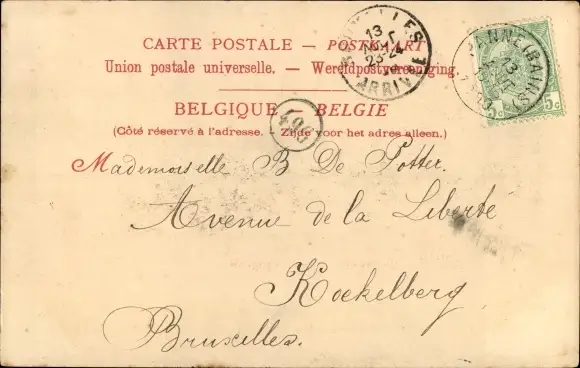 CARTE POSTALE — POSTKAART
Union postale universelle. — Wereldpostvereeniging.
BELGIQUE — BELGIE
(Côté réservé à l'adresse. — Zijde voor het adres alleen.)
13
AOUT
ARRIV
PANNE (BAINS)
13
5c 5c
Mademoiselle B De Potter.
Avenue de la Liberté
Koekelberg
Bruxelles.